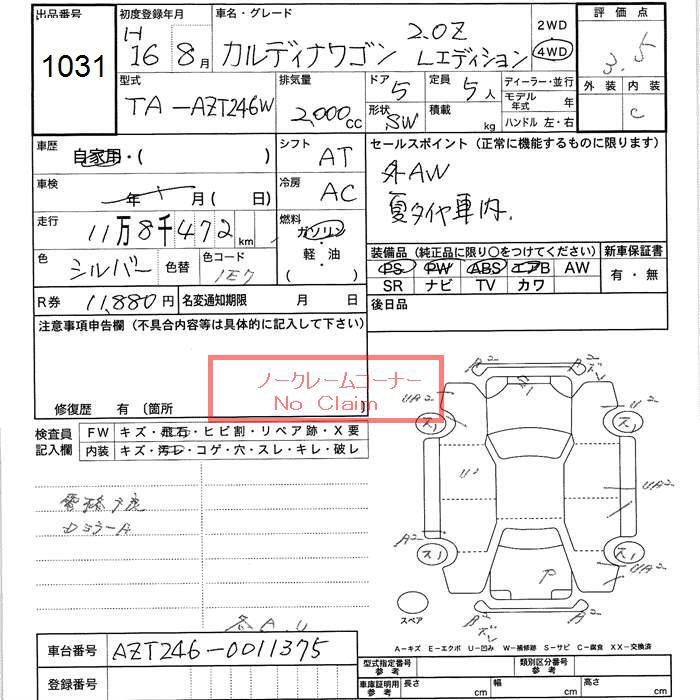 出品番号 初度登録年月 車名・グレード 評価点
1031 H 16 8月 カルディナワゴン 2.0Z Lエディション 2WD 4WD 3.5
外装 内装 C
型式 TA-AZT246W 排気量 2,000cc ドア 5 定員 5人 ディーラー・並行
形状 SW 積載 kg モデル年式 年 ハンドル 左・右
車歴 自家用・( ) シフト AT
セールスポイント (正常に機能するものに限ります)
外AW
夏タイヤ車内.
車検 年 月( 日) 冷房 AC
走行 11万8千472km 燃料 ガソリン・軽・油 ( )
色 シルバー 色替 色コード 1E7
装備品 (純正品に限り○をつけてください) 新車保証書
PS PW ABS エアB AW 有・無
SR ナビ TV カワ
R券 11,880円 名変通知期限 月 日
後日品
注意事項申告欄 (不具合内容等は具体的に記入して下さい)
ノークレームコーナー
No Claim
修復歴 有 〔箇所
検査員記入欄 FW キズ・飛石・ヒビ割・リペア跡・X要
内装 キズ・汚レ・コゲ・穴・スレ・キレ・破レ
ドミラーA
各A.U
A2 A2
UA2 U2
ス1 ス1
U2 UA2
A2
ス1 ス1
UA2
P
A2 A2
スペア
A-キズ E-エクボ U-凹み W-補修跡 S-サビ C-腐食 XX-交換済
車台番号 AZT246-0011375
登録番号
型式指定番号 参考 類別区分番号 参考
車庫証明用 参考 長さ cm 幅 cm 高さ cm